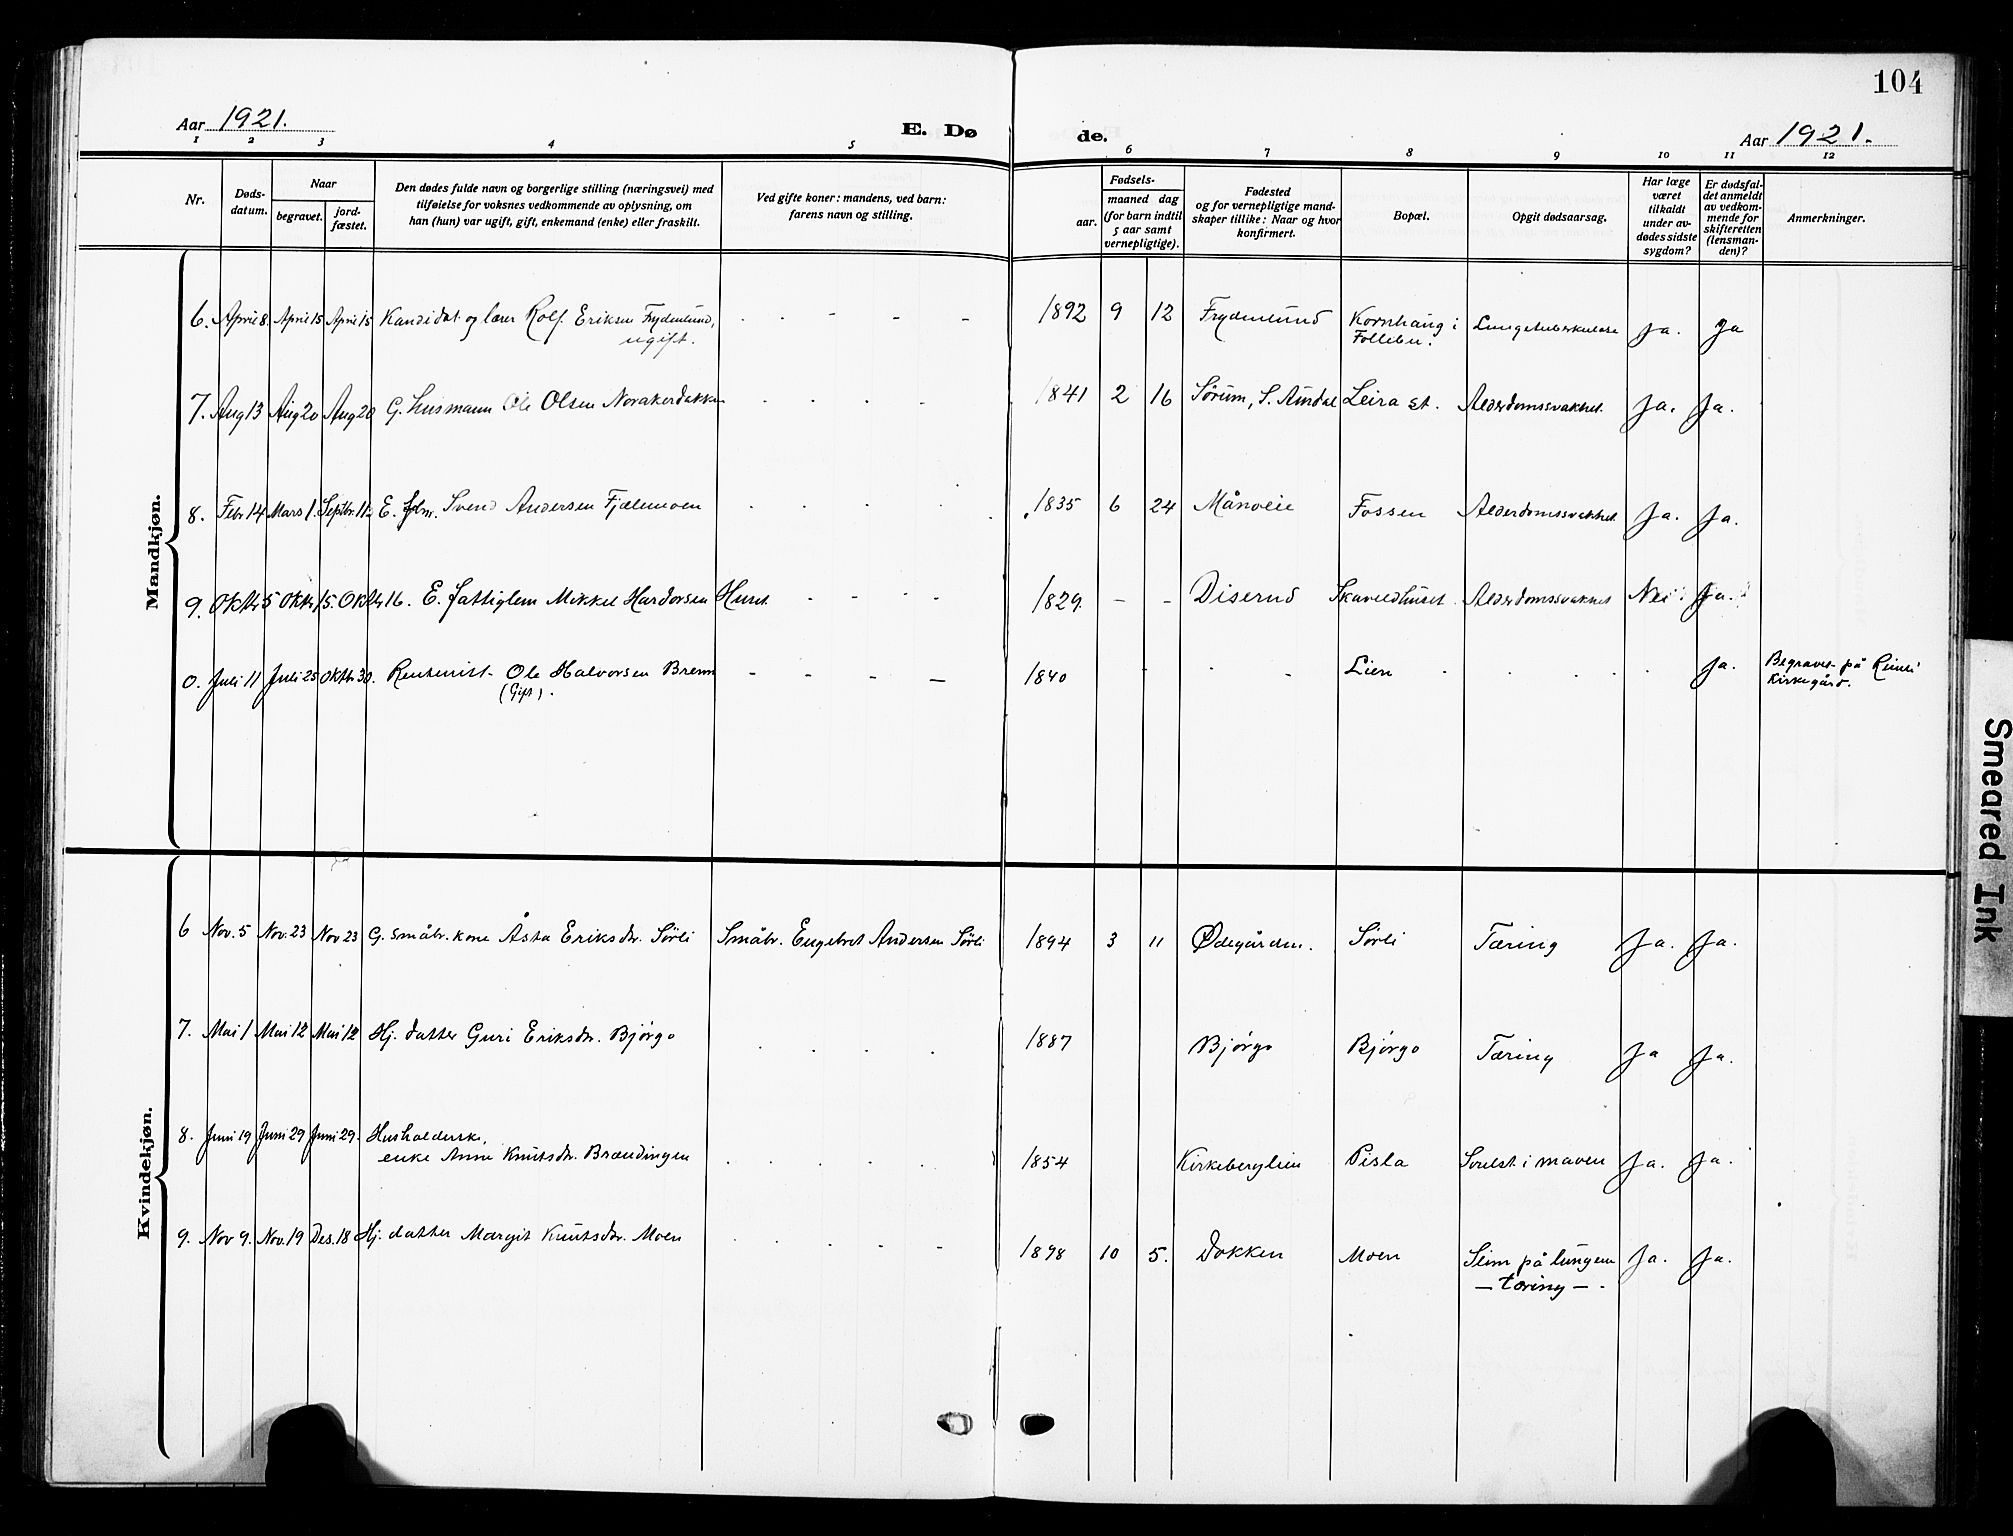 104
Aar 1921.
E. Dø
de.
Aar 1921.
1 2 3 4 5 6 7 8 9 10 11 12
Nr.
Døds-
datum.
Naar
begravet.
jord-
fæstet.
Den dødes fulde navn og borgerlige stilling (næringsvei) med
tilføielse for voksnes vedkommende av oplysning, om
han (hun) var ugift, gift, enkemand (enke) eller fraskilt.
Ved gifte koner: mandens, ved barn:
farens navn og stilling.
Fødsels-
aar.
maaned dag
(for barn indtil
5 aar samt
vernepligtige).
Fødested
og for vernepligtige mand-
skaper tillike: Naar og hvor
konfirmert.
Bopæl.
Opgit dødsaarsag.
Har læge
været
tilkaldt
under av-
dødes sidste
sygdom?
Er dødsfal-
det anmeldt
av vedkom-
mende for
skifteretten
(lensman-
den)?
Anmerkninger.
Mandkjøn.
6. April 8. April 15 April 15 Kandidat og lærer Rolf Eriksen Frydenlund, - - - - - 1892 9 12 Frydenlund Kornhaug i Lungetuberkulose Ja. Ja
ugift. Follebu.
7. Aug 13 Aug 20 Aug 20 G. husmann Ole Olsen Norakerdokken 1841 2 16 Sørum, S. Aurdal Leira st. Alderdomssvakhet Ja. Ja.
8. Febr 14 Mars 1. Septbr. 11. E. fhv. Svend Andersen Fjelemoen 1835 6 24 Fossen Alderdomssvakhet Ja. Ja.
9. Oktbr 5 Oktbr 15. Oktbr 16. E. fattiglem Mikkel Hardorsen Huset - - - - 1829. - - Diserud Skavellhuset Alderdomssvakhet Nei Ja.
0. Juli 11 Juli 25 Oktbr 30. Ole Halvorsen Brenn - - - - 1840 Lien Ja. Begravet på Reinli
(Gift). Kirkegård.
Kvindekjøn.
6 Nov. 5 Nov. 23 Nov 23 G. småbr. kone Åsta Eriksdtr. Sørli Småbr. Engebret Andersen Sørli 1894 3 11 Ødegården. Sørli Tæring Ja. Ja.
7. Mai 1 Mai 12 Mai 12 Hj. datter Guri Eriksdtr. Bjørgo 1887 Bjørgo Bjørgo Tæring Ja Ja.
8. Juni 19 Juni 29 Juni 29. Husholderske,
enke Anne Knutsdtr. Brændingen 1854 Kirkeberglien Pisla Svulst i maven Ja. Ja.
9. Nov 9. Nov. 19 Des. 18 Hj. datter Margit Knutsdtr. Moen 1898 10 5. Dokken Moen Slim på lungene Ja. Ja.
- tæring -.
Smeared Ink